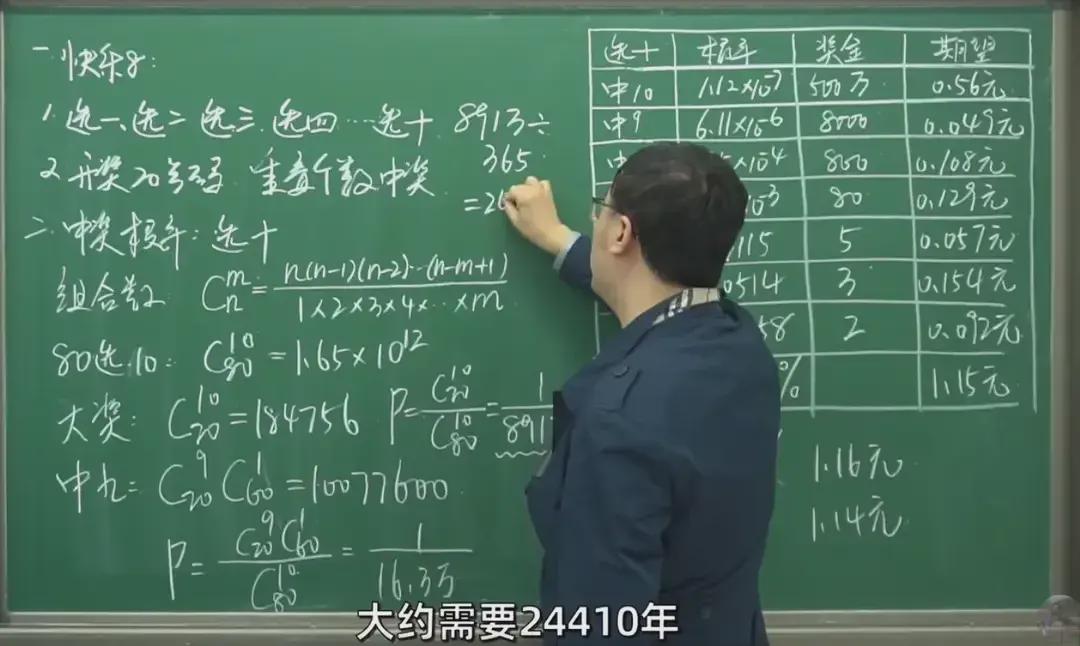 一 快乐8:
1. 选一、选二 选三、选四…选十
2. 开奖20个号码 重叠个数中奖
二、中奖概率: 选十
组合数 C_n^m = n(n-1)(n-2)…(n-m+1) / 1×2×3×4×…×m
80选10: C_80^10 = 1.65×10^12
大奖: C_20^10 = 184756 P = C_20^10 / C_80^10 = 1 / 891
中九: C_20^9 C_60^1 = 10077600
P = C_20^9 C_60^1 / C_80^10 = 1 / 16.3万
891万÷
365
=2
选十 概率 奖金 期望
中10 1.12×10^-7 500万 0.56元
中9 6.11×10^-6 8000 0.049元
中 ×10^-4 800 0.108元
10^-3 80 0.129元
115 5 0.057元
0514 3 0.154元
58 2 0.092元
% 1.15元
1.16元
1.14元
大约需要24410年